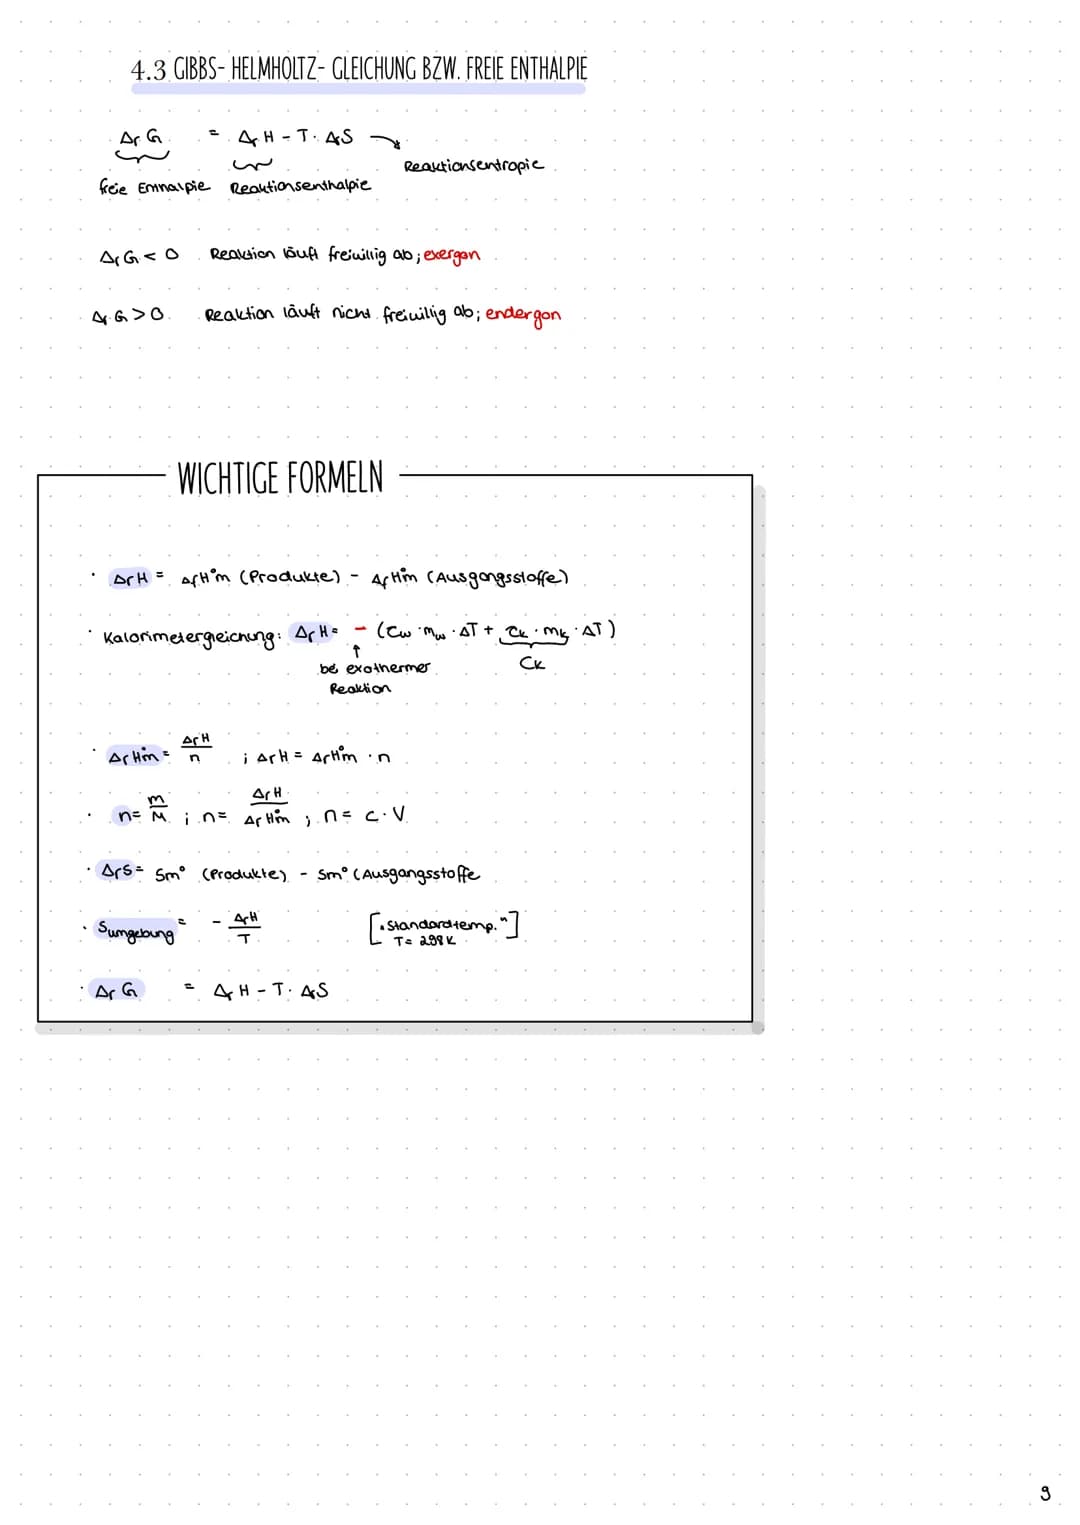 4.3 GIBBS- HELMHOLTZ- GLEICHUNG BZW. FREIE ENTHALPIE
ΔrG = ΔrH - T · ΔrS
Reaktionsentropie
freie Enthalpie Reaktionsenthalpie
ΔrG < 0 Reaktion läuft freiwillig ab; exergon
ΔrG > 0 Reaktion läuft nicht freiwilig ab; endergon
WICHTIGE FORMELN
· ΔrH = ΔfH°m (Produkte) - ΔfH°m (Ausgangsstoffe)
· Kalorimetergleichung: ΔrH = - (cw · mw · ΔT + ck · mk · ΔT)
↑
bei exothermer
Reaktion
Ck
· ΔrH°m = ΔrH / n ; ΔrH = ΔrH°m · n
· n = m/M ; n = ΔrH / ΔrH°m ; n = c · V
· ΔrS = Sm° (Produkte) - Sm° (Ausgangsstoffe
· Sumgebung = - ΔrH / T [„Standardtemp."]
T = 298 K
· ΔrG = ΔrH - T · ΔrS
9